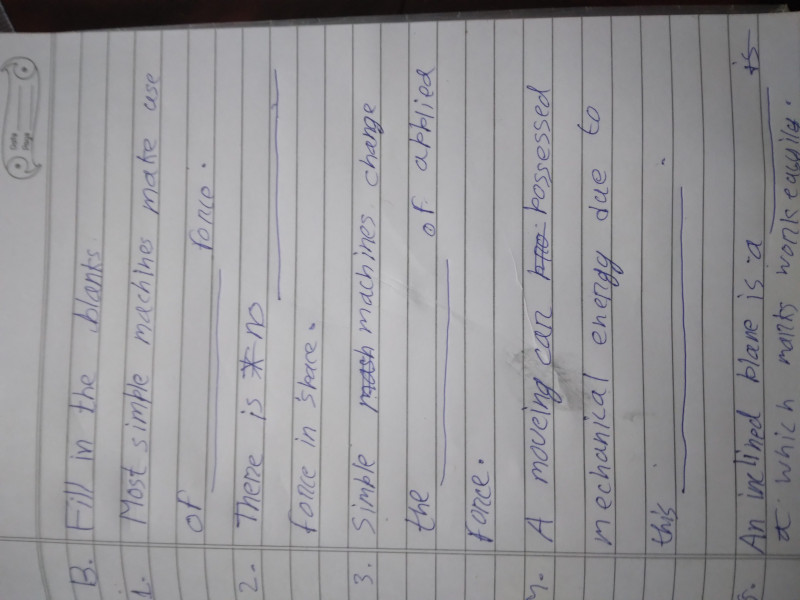 B. Fill in the blanks
1. Most simple machines make use
of ________ force.
2. There is no ________
force in space.
3. Simple machines change
the ________ of applied
force.
4. A moveing car possessed
mechanical energy due to
this ________.
5. An inclined plane is a ________
at which works easily.